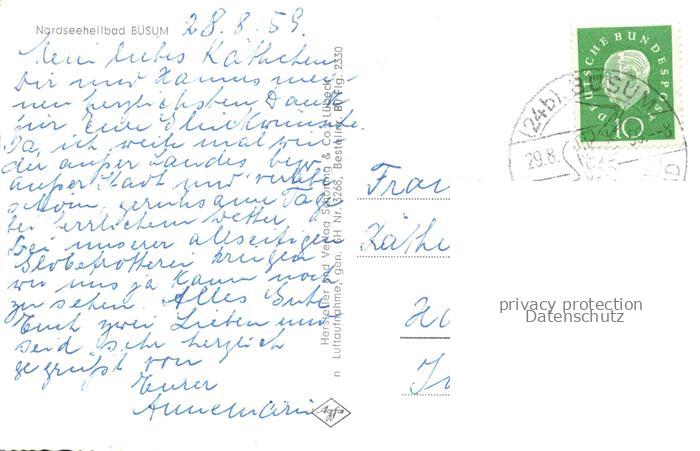 Nordseeheilbad BÜSUM
28.8.59.
Mein liebes Käthchen
Dir und Hannes mei-
nen herzlichsten Dank
für Eure Glückwünsche.
Ja, ich weile mal wie-
der außer Landes bezw.
außer Stadt und verlebe
schön, geruhsame Tage
bei herrlichem Wetter.
Bei unserer allseitigen
Globetrotterei kriegen
wir uns ja kaum noch
zu sehen. Alles Gute
Euch zwei Lieben und
seid sehr herzlich
gegrüßt von
Eurer
Annemarie
Hersteller und Verlag Schöning & Co., Lübeck
n Luftaufnahme, gen. SH Nr. Bestellnr. Bü Flg. 2330
Agfa
DEUTSCHE BUNDESPOST
10
(24b) BÜSUM
29.8. 59.-8
Frau
Käthe
privacy protection
Datenschutz